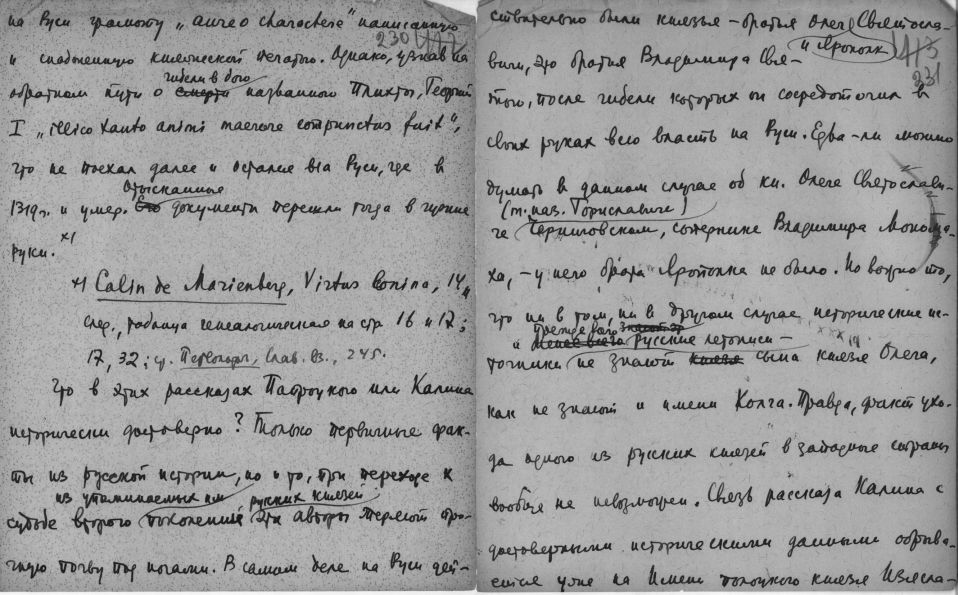 на Руси грамоту „aureo charactere" написанную
230
и снабженную княжеской печатью. Однако, узнав на
гибели в бою
обратном пути о смерти названного Плихты, Георгий
I „illico tanto animi maerore compunctus fuit",
что не поехал далее и остался в Руси, где в
Отысканные
1319г. и умер. Его документы перешли тогда в чужие
руки. x1
x1 Calin de Marienberg, Virtus Leonina, 14,,
след., таблица генеалогическая на стр 16 и 17;
17, 32; ср. Первольф, Слав. вз., 245.
Что в этих рассказах Папроцкого или Калина
исторически достоверно? Только первичные фак-
ты из русской истории, но и то, при переходе к
из упоминаемых им русских князей
судьбе второго поколения эти авторы теряют про-
чную почву под ногами. В самом деле на Руси дей-
ствительно были князья – братья Олег Святосла-
и Ярополк
413
вичи, это братья Владимира Свя-
231
того, после гибели которых он сосредоточил в
своих руках всю власть на Руси. Едва-ли можно
думать в данном случае об кн. Олеге Святослави-
(т. наз. Гориславиче)
че Черниговском, сопернике Владимира Монома-
ха, – у него брата Ярополка не было. Но важно то,
что ни в том, ни в другом случае исторические ис-
прежде всего
и менее всего русские летописи –
точники не знают князя сына князя Олега,
как не знают и имени Колга. Правда, факт ухо-
да одного из русских князей в западные страны
вообще не невозможен. Связь рассказа Калина с
достоверными историческими данными обрыва-
ется уже на имени полоцкого князя Изясла-